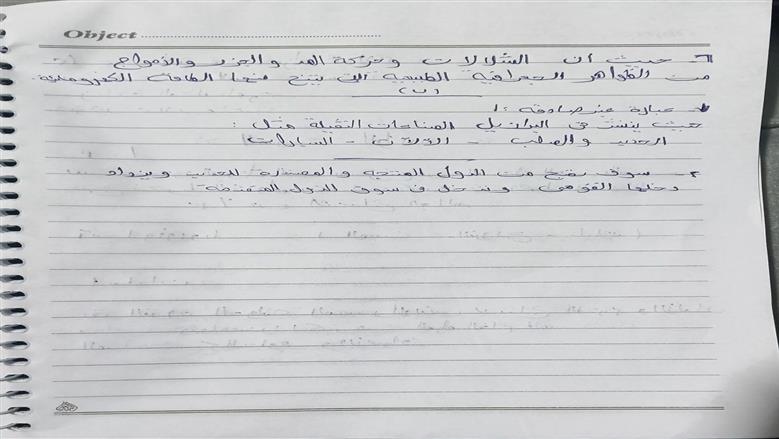 Object
٦- حيث أن الشلالات وحركة المد والجزر والأمواج
من الظواهر الجغرافية الطبيعية التى ينتج منها الطاقة الكهرومائية
(ب)
١- عبارة غير صادقة :
حيث ينتشر فى البرازيل الصناعات الثقيلة مثل :
الحديد والصلب - - السيارات
٢- سوف تصبح من الدول المنتجة والمصدرة للعنب ويزداد
دخلها القومى وتدخل فى سوق الدول المتقدمة